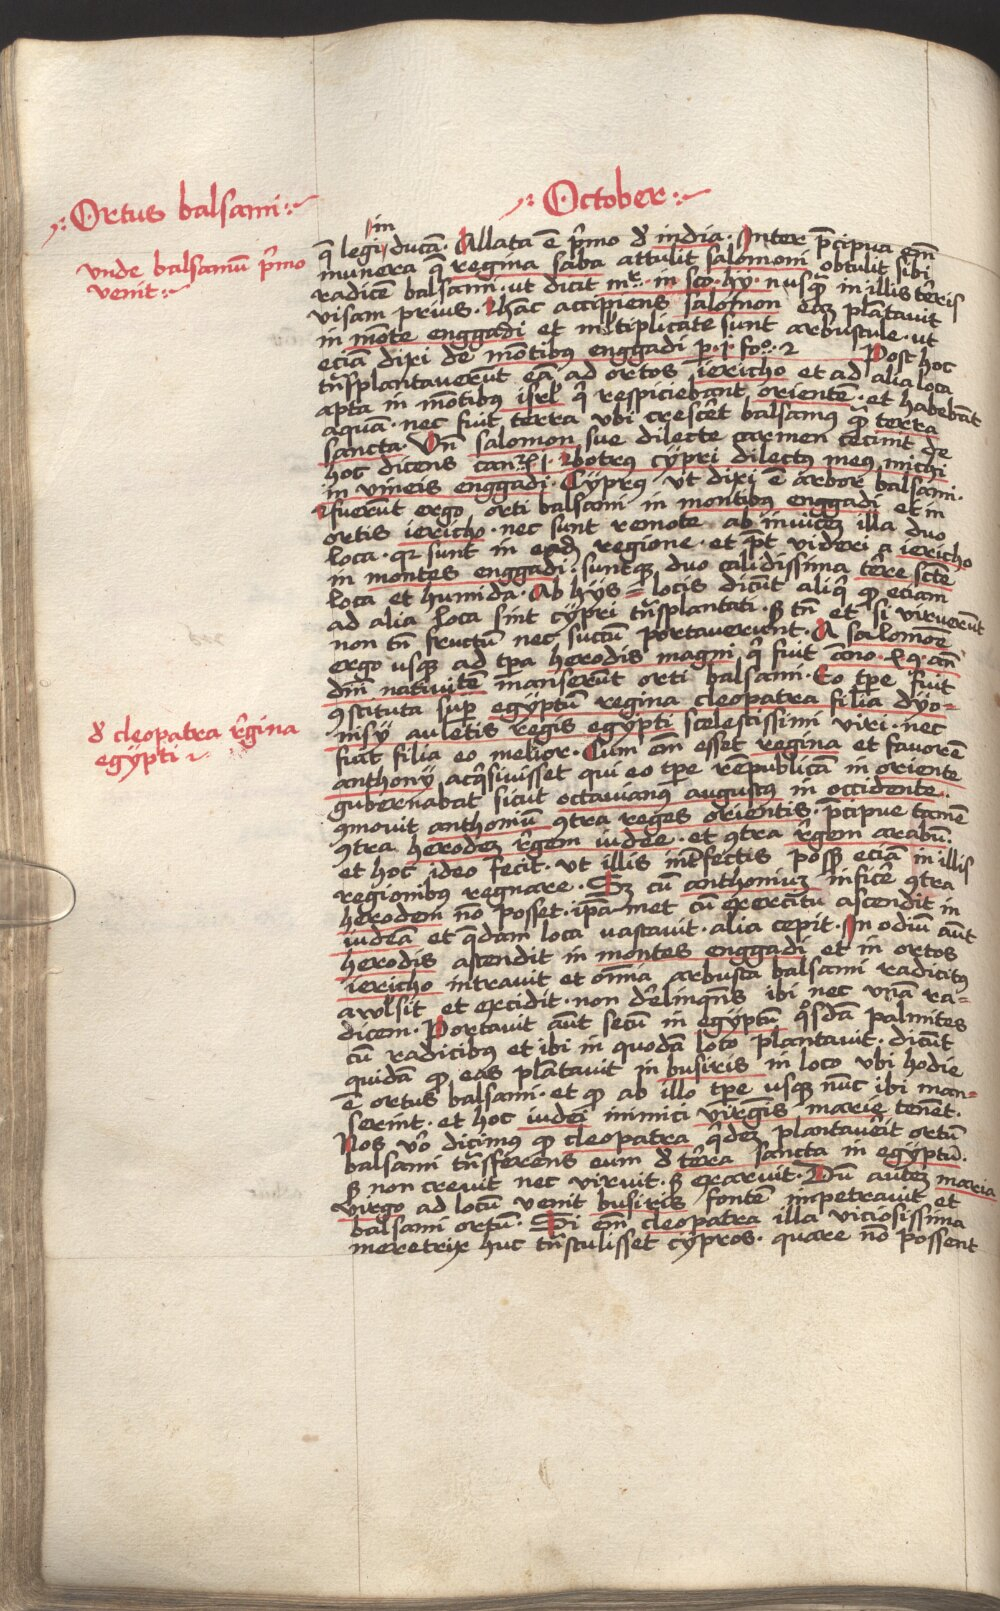 Ortus balsami
October
vnde balsamū p̄mo
venit
in
q̄ legi ducā. Allata ē p̄mo d' india. Inter p̄cipua em̄
munera q̄ regina saba attulit salomoni obtulit sibi
radicē balsami. ut dicit mr̄. in sco. hy. nusq̄ in illis tēris
visam prius. Hāc accipiens salomon eaz plātauit
in mōte enggadi et multiplicate sunt arbustule. ut
eciam dixi de mōtibus enggadi p. i. fo. 2 Post hoc
tn̄splantauerūt eā ad ortos iericho et ad alia loca
apta in mōtibus isrl' q̄ respiciebant orientē. et habebāt
aquā. nec fuit terra vbi crescēt balsamus q̄ terra
sancta. Vn̄ salomon sue dilecte carmen cecinit de
hoc dicens can. i. Botrus cypri dilectus meus michi
in vineis enggadi. Cyprus vt dixi ē arbor balsami.
fuerūt ergo orti balsami in montibus enggadi et in
ortis iericho. nec sunt remote ab inuicez illa duo
loca. qr sunt in eadē regione. et pt̄ videri a iericho
in montes enggadi. suntqz duo calidissima tēre sctē
loca et humida. Ab hys locis dicūt aliq̄ qp eciam
ad alia loca sint cypri tn̄splantati. s̄ tn̄ et si viruerūt
non tn̄ fructū nec succū portauerunt. A salomōe
ergo usqz ad tp̄a herodis magni q̄ fuit āno x q ān
dni natiuitē manserūt orti balsami. Eo tp̄e fuit
9stituta sup̄ egyptū regina cleopatra filia dyo=
nisÿ auletis regis egypti scelestissimi viri. nec
fuit filia eo melior. Cum em̄ esset regina et fauorē
anthonÿ acq̄siuisset qui eo tp̄e rēpublicā in oriente
gubernabat sicut octauianus augustus in occidente.
9mouit anthoniū 9tra reges orientis. p̄cipue tamē
9tra herodez r̄gem iudee. et 9tra r̄gem arabū.
et hoc ideo fecit. vt illis int̄fectis possz eciā in illis
regionibus regnare. Sz cū anthoniuz inficē 9tra
herodem nō posset. ip̄a met cū exercitu ascendit in
iudeā et q̄dam loca vastauit. alia cepit. In odiū aūt
herodis ascendit in montes enggadi et in ortos
iericho intrauit et om̄ia arbusta balsami radicitus
awlsit et excidit. non d'elinqn̄s ibi nec vnā ra=
dicem. Portauit aūt secū in egyptū qsdā palmites
cū radicibus et ibi in quodā loco plantauit. dicūt
quidā qp eas plātauit in busiris in loco vbi hodie
ē ortus balsami. et qp ab illo tp̄e usqz nūc ibi man=
serint. et hoc iudei inimici virgīs marie tenēt.
Nos v̄o dicimus qp cleopatra q̄dez plantauēit ortū
balsami tn̄sferens eum d' tēra sancta in egyptū.
s̄ non creuit nec viruit. s̄ exaruit. Dū autez maria
virgo ad locū venit busiris fontē impetrauit et
balsami ortū. Si em̄ cleopatra illa viciosissima
meretrix huc tn̄stulisset cypros. quare nō possent
d' cleopatra r̄gina
egypti